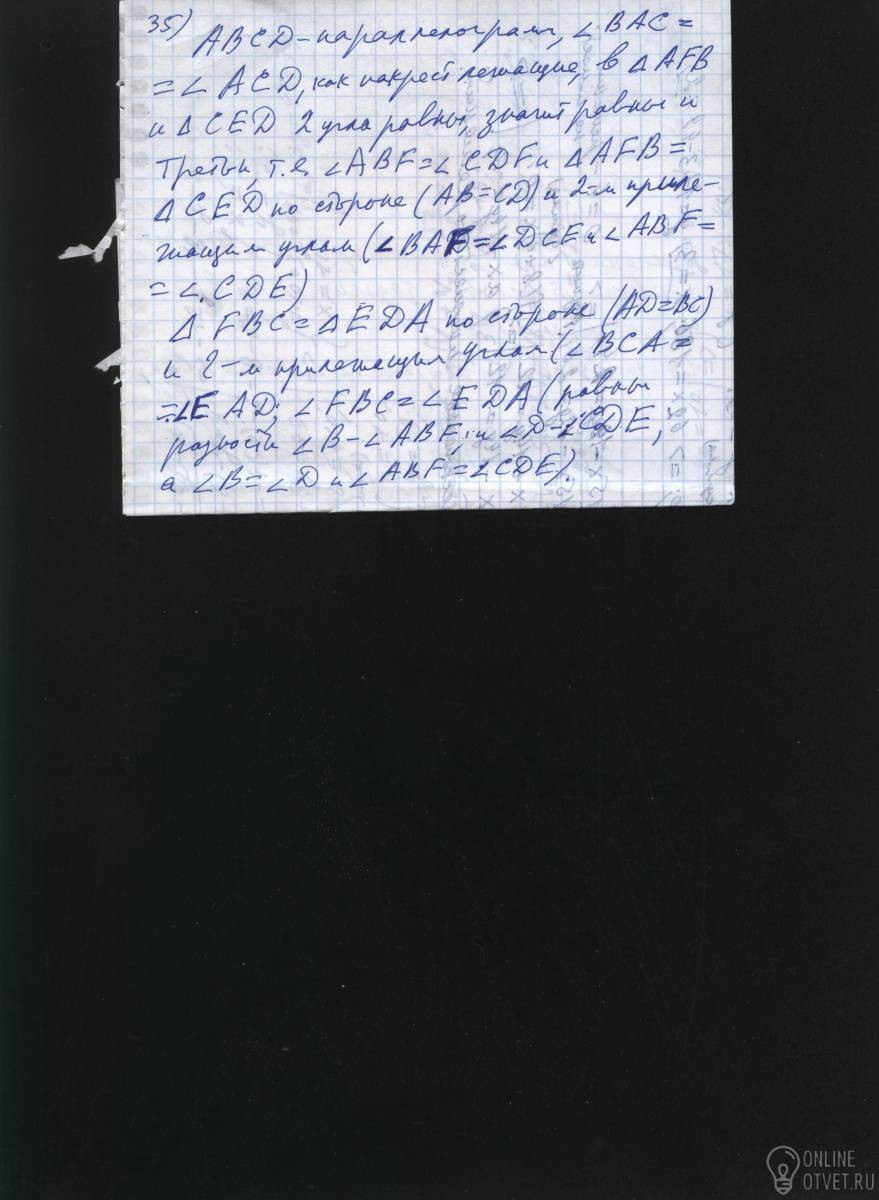 35) ABCD - параллелограмм, ∠BAC =
= ∠ACD, как накрест лежащие, в △AFB
и △CED 2 угла равны, значит равны и
третьи, т.е. ∠ABF = ∠CDF и △AFB =
△CED по стороне (AB = CD) и 2-м приле-
жащим углам (∠BAF = ∠DCE и ∠ABF =
= ∠CDE)
△FBC = △EDA по стороне (AD = BC)
и 2-м прилежащим углам (∠BCA =
= ∠EAD; ∠FBC = ∠EDA (равны
разности ∠B - ∠ABF, и ∠D - ∠CDE,
а ∠B = ∠D и ∠ABF = ∠CDE).
ONLINE
OTVET.RU